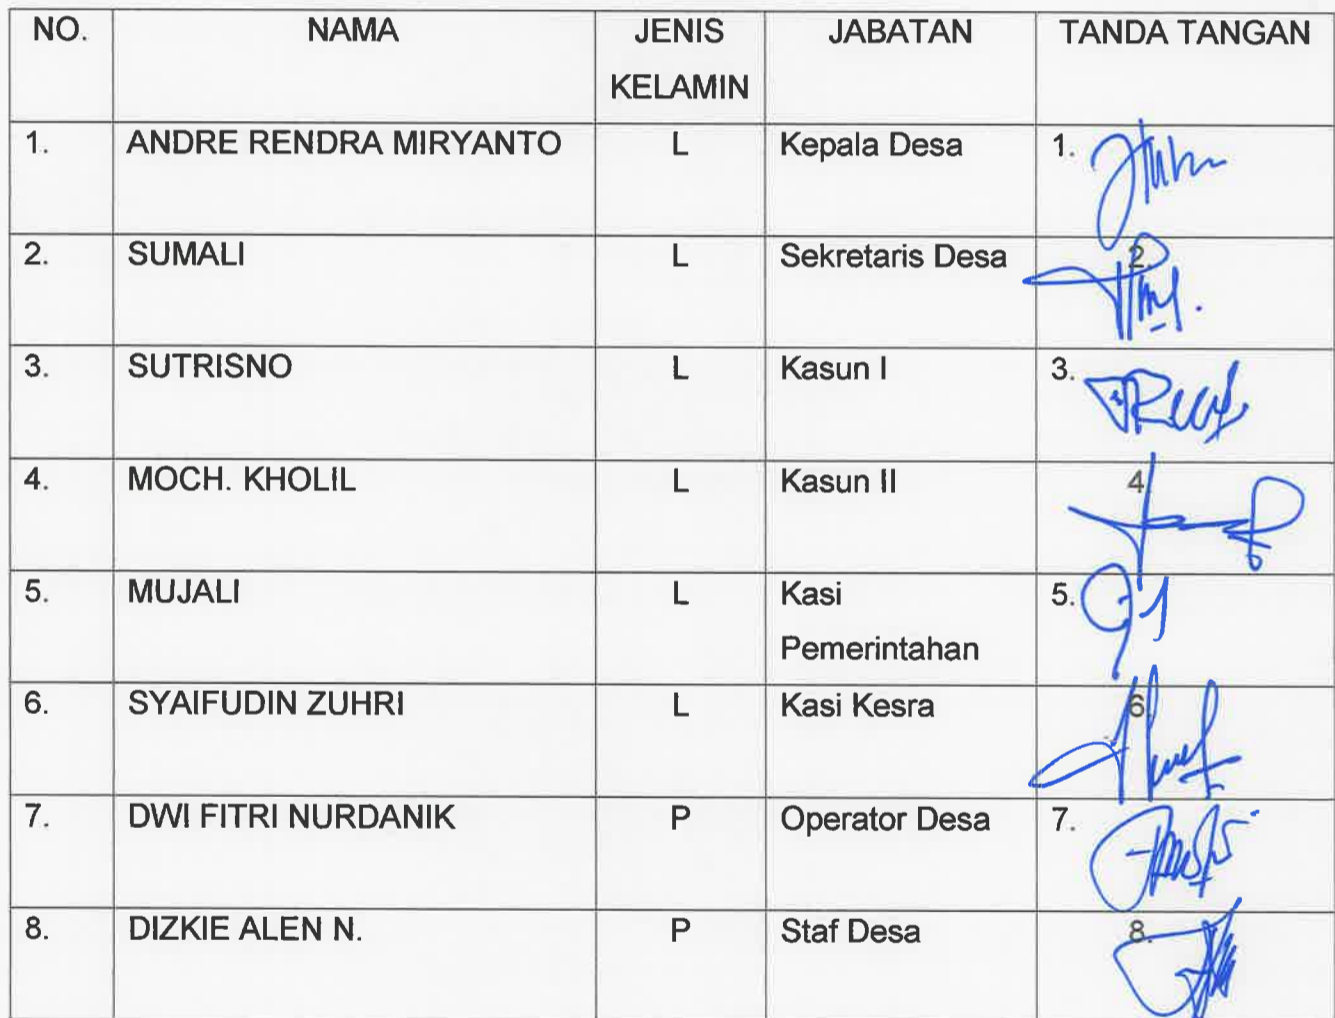 NO. NAMA JENIS KELAMIN JABATAN TANDA TANGAN
1. ANDRE RENDRA MIRYANTO L Kepala Desa 1.
2. SUMALI L Sekretaris Desa 2.
3. SUTRISNO L Kasun I 3.
4. MOCH. KHOLIL L Kasun II 4
5. MUJALI L Kasi Pemerintahan 5.
6. SYAIFUDIN ZUHRI L Kasi Kesra 6.
7. DWI FITRI NURDANIK P Operator Desa 7.
8. DIZKIE ALEN N. P Staf Desa 8.